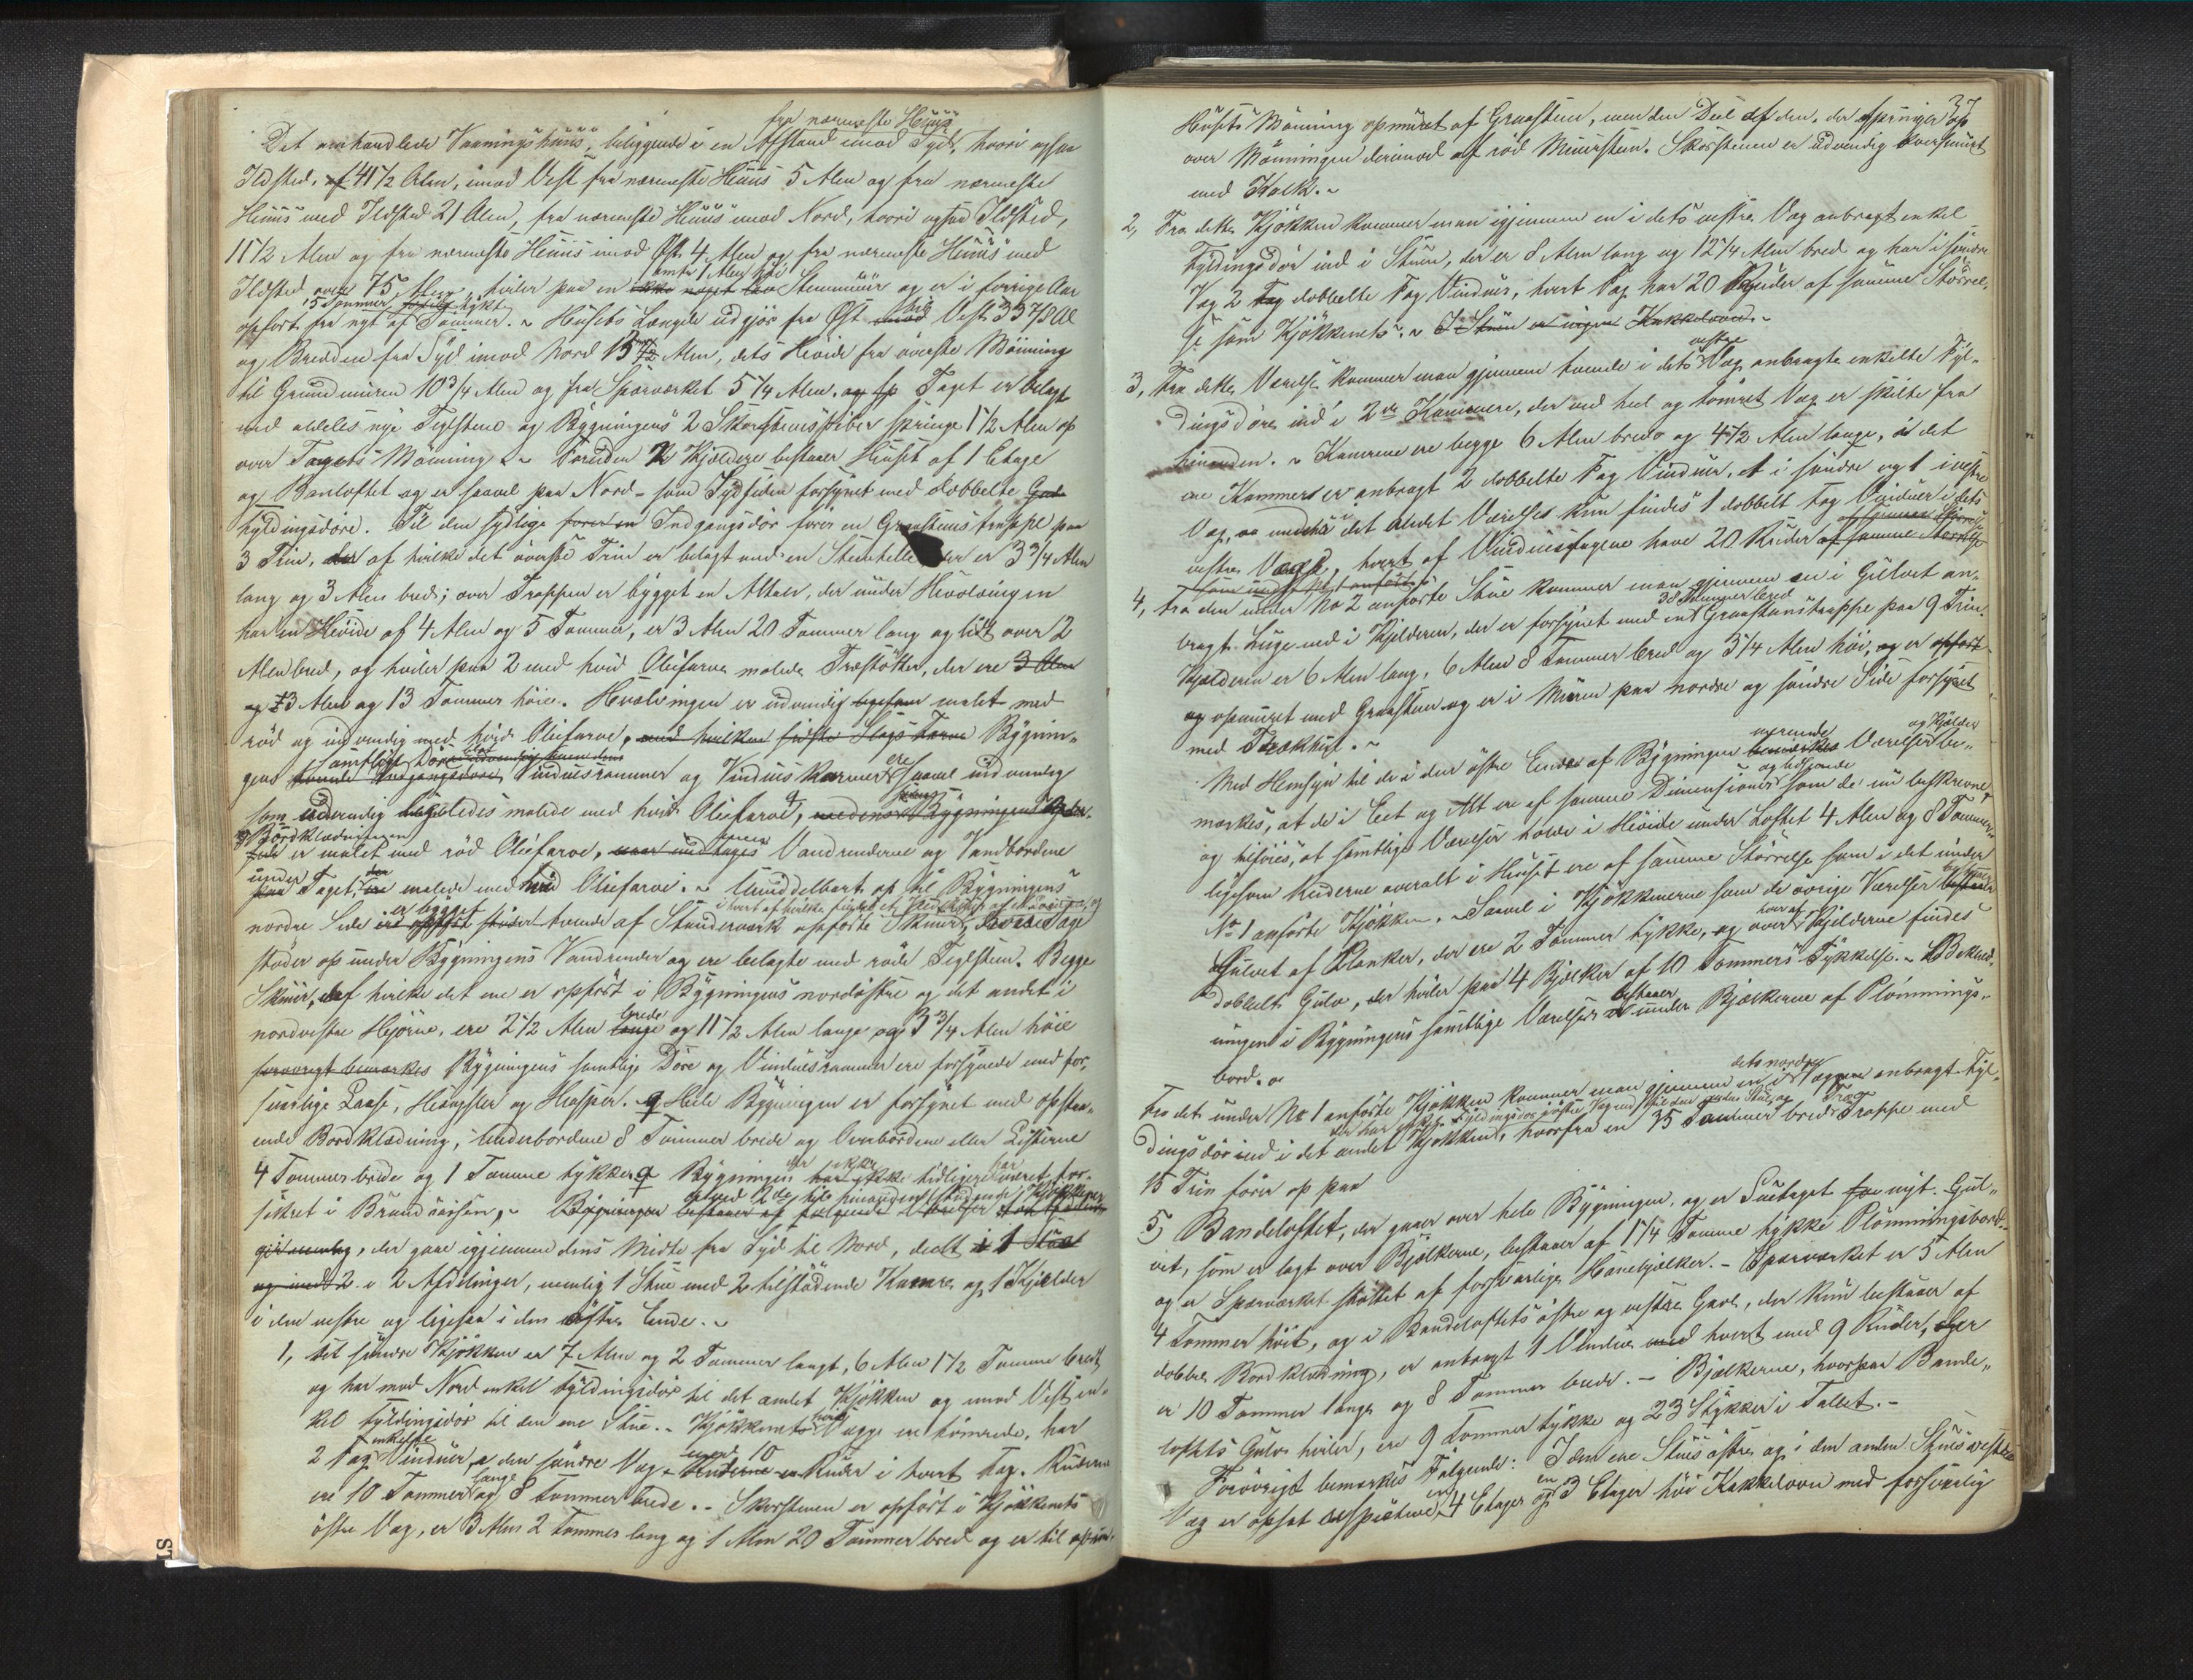 fra nærmeste Huus
Det omhandlede Vaaningshuus, beliggende i en Afstand imod Syd, hvori ogsaa
Ildsted, af 41 1/2 Alen, imod Vest fra nærmeste Huus 5 Alen og fra nærmeste
Huus med Ildsted 21 Alen, fra nærmeste Huus imod Nord, hvori ogsaa Ildsted,
11 1/2 Alen og fra nærmeste Huus imod Øst 4 Alen og fra nærmeste Huus med
omtr 1 Alen høi
Ildsted over 75 Alen, hviler paa en ikke noget lav Steenmuur og er i forrige Aar
5 Tommer tykt
opført fra nyt af Tømmer. ~ Husets Længde udgjør fra Øst imod til Vest 33 7/8 Al
og Bredden fra Syd imod Nord 15 1/2 Alen, dets Høide fra øverste Mønning
til Grundmuren 10 3/4 Alen og fra Sparværket 5 1/4 Alen. Taget er belagt
med aldeles nye Teglsteen og Bygningens 2 Skorsteenspiber springe 1 1/2 Alen op
over Tagets Mønning. ~ Foruden 2 Kjældere bestaaer Huset af 1 Etage
og Banloftet og er saavel paa Nord- som Sydsiden forsynet med dobbelte
Fyldingsdøre. Til den sydlige fører en Indgangsdør fører en Graasteenstrappe paa
3 Trin, der af hvilke det øverste Trin er belagt med en Steenhelle der er 3 3/4 Alen
lang og 3 Alen bred; over Trappen er bygget en Altan, der under Hvælvingen
har en Høide af 4 Alen og 5 Tommer, er 3 Alen 20 Tommer lang og lidt over 2
Alen bred, og hviler paa 2 med hvid Oliefarve malede Træstøtter, der ere 3 Alen
og 3 Alen og 13 Tommer høie. Hvælvingen er udvendig ligesom malet med
rød og indvendig med hvid Oliefarve, med hvilken sidste Slags Farve Bygnin-
samtlige Døre
gens tvende Indgangsdøre Vinduesrammer og Vindueskarmer ere saavel indvendig
som udvendig ligeledes malede med hvid Oliefarve, medens Bygningens
Bordklædningen
er malet med rød Oliefarve, naar undtages Vandrenderne og Vandbordene
under
paa Taget, der ere malede med hvid Oliefarve. ~ Umiddelbart op til Bygningens
er bygget i hvert af hvilke findes et Vindue
nordre Side er opført støder tvende af Stænderværk opførte Skuur, hvis Tage
støder op under Bygningens Vandrender og ere belagte med røde Teglsteen. Begge
Skuur, af hvilke det ene er opført i Bygningens nordøstre og det andet i
nordvestre Hjørne, ere 2 1/2 Alen lange brede og 11 1/2 Alen lange og 3 3/4 Alen høie
forøvrigt bemærkes Bygningens samtlige Døre og Vinduesrammer ere forsynede med for-
svarlige Laase, Hængsler og Hasper. Hele Bygningen er forsynet med opstaa-
ende Bordklædning, Underbordene 8 Tommer brede og Overbordene eller Listerne
4 Tommer brede og 1 Tomme tykke. Bygningen har ikke tidligere været for-
sikret i Brandcassen. ~ Bygningen bestaaer af følgende Værelser
ved 2de til hinanden stødende Kjøkkener
nemlig, der gaae igjennem dens Midte fra Syd til Nord, deelt i 1 Stue
og med 2 i 2 Afdelinger, nemlig 1 Stue med 2 tilstødende Kamre og 1 Kjelder
i den vestre og ligesaa i den østre Ende. ~
1, Det søndre Kjøkken er 7 Alen og 2 Tommer langt, 6 Alen 1 1/2 Tomme bredt,
og har mod Nord enkel Fyldingsdør til det andet Kjøkken og imod Vest en-
kel Fyldingsdør til den ene Stue. ~ Kjøkkenets hvis Vægge ere tømrede, har
2 Fag enkelte Vinduer i den søndre Væg, Ruderne med 10 Ruder i hvert Fag. Ruderne
ere 10 Tommer lange og 8 Tommer brede. ~ Skorstenen er opført i Kjøkkenets
østre Væg, er 3 Alen 2 Tommer lang og 1 Alen 20 Tommer bred og er til
37
Husets Mønning opmuret af Graasteen, men den Deel af den, der springer op
over Mønningen derimod af rød Muursteen. Skorstenen er udvendig oversmurt
med Kalk. ~
2, Fra dette Kjøkken kommer man igjennem en i dets vestre Væg anbragt enkel
Fyldingsdør ind i Stuen, der er 8 Alen lang og 12 1/4 Alen bred og har i søndre
Væg 2 Fag dobbelte Fag Vinduer, hvert Fag har 20 Ruder af samme Størrel-
se som Kjøkkenets. ~ I Stuen er ingen Kakkelovn. ~
3, Fra dette Værelse kommer man gjennem tvende i dets vestre Væg anbragte enkelte Fyl-
dingsdøre ind i 2de Kammere, der ved heel og tømret Væg er skilte fra
hinanden. ~ Kamrene ere begge 6 Alen brede og 4 1/2 Alen lange, i det
ene Kammers er anbragt 2 dobbelte Fag Vinduer, 1 i søndre og 1 i vestre
Væg, og medens i det andet Værelses kun findes 1 dobbelt Fag Vinduer i dets
vestre Væg, hvert af Vinduesfagene have 20 Ruder af samme Størrelse
som under No 1 anført
4, Fra den under No 2 anførte Stue kommer man gjennem en i Gulvet an-
38 Tommer bred
bragt Luge ned i Kjelderen, der er forsynet med en Graasteenstrappe paa 9 Trin.
Kjælderen er 6 Alen lang, 6 Alen 8 Tommer bred og 3 1/4 Alen høi, og er opført
og opmuret med Graasteen og er i Muren paa nordre og søndre Side forsynet
med Trækhul. ~
Med Hensyn til de i den østre Ende af Bygningen værende Værelser og Kjelder be-
mærkes, at de i Eet og Alt ere af samme Dimensioner og Udseende som de nu beskrevne,
og tilføies, at samtlige Værelser holde i Høide under Loftet 4 Alen og 8 Tommer,
ligesom Ruderne overalt i Huset ere af samme Størrelse som i det under
No 1 anførte Kjøkken. ~ Saavel i Kjøkkenerne som de øvrige Værelser bestaaer
Gulvet af Planker, der ere 2 Tommer tykke, og over hver af Kjelderne findes
dobbelt Gulv, der hviler paa 4 Bjelker af 10 Tommers Tykkelse. ~ Beklæd-
ningen i Bygningens samtlige Værelser bestaaer under Bjælkerne af Pløinings-
bord. ~
Fra det under No 1 anførte Kjøkken kommer man gjennem en i dets nordre Væg anbragt Fyl-
dingsdør ind i det andet Kjøkken, hvorfra en 35 Tommer bred Træ Trappe med
15 Trin fører op paa
5, Bandeloftet, der gaaer over hele Bygningen, og er Suetaget nyt. Gul-
vet, som er lagt over Bjelkerne, bestaaer af 1 1/4 Tomme tykke Pløiningsbord,
og er Sparværket støttet af forsvarlige Hanebjelker. - Sparværket er 5 Alen
4 Tommer høit, og i Bandeloftets østre og vestre Gavl, der kun bestaaer af
dobbel Bordklædning, er anbragt 1 Vindue med hvert med 9 Ruder, der
er 10 Tommer lange og 8 Tommer brede. - Bjælkerne, hvorpaa Bande-
loftets Gulv hviler, ere 9 Tommer tykke og 23 Stykker i Tallet. -
Forøvrigt bemærkes Følgende: I den ene Stues østre og i den anden Stues vestre
Væg er opsat respective en 4 Etager og en 3 Etager høi Kakkelovn med forsvarlig